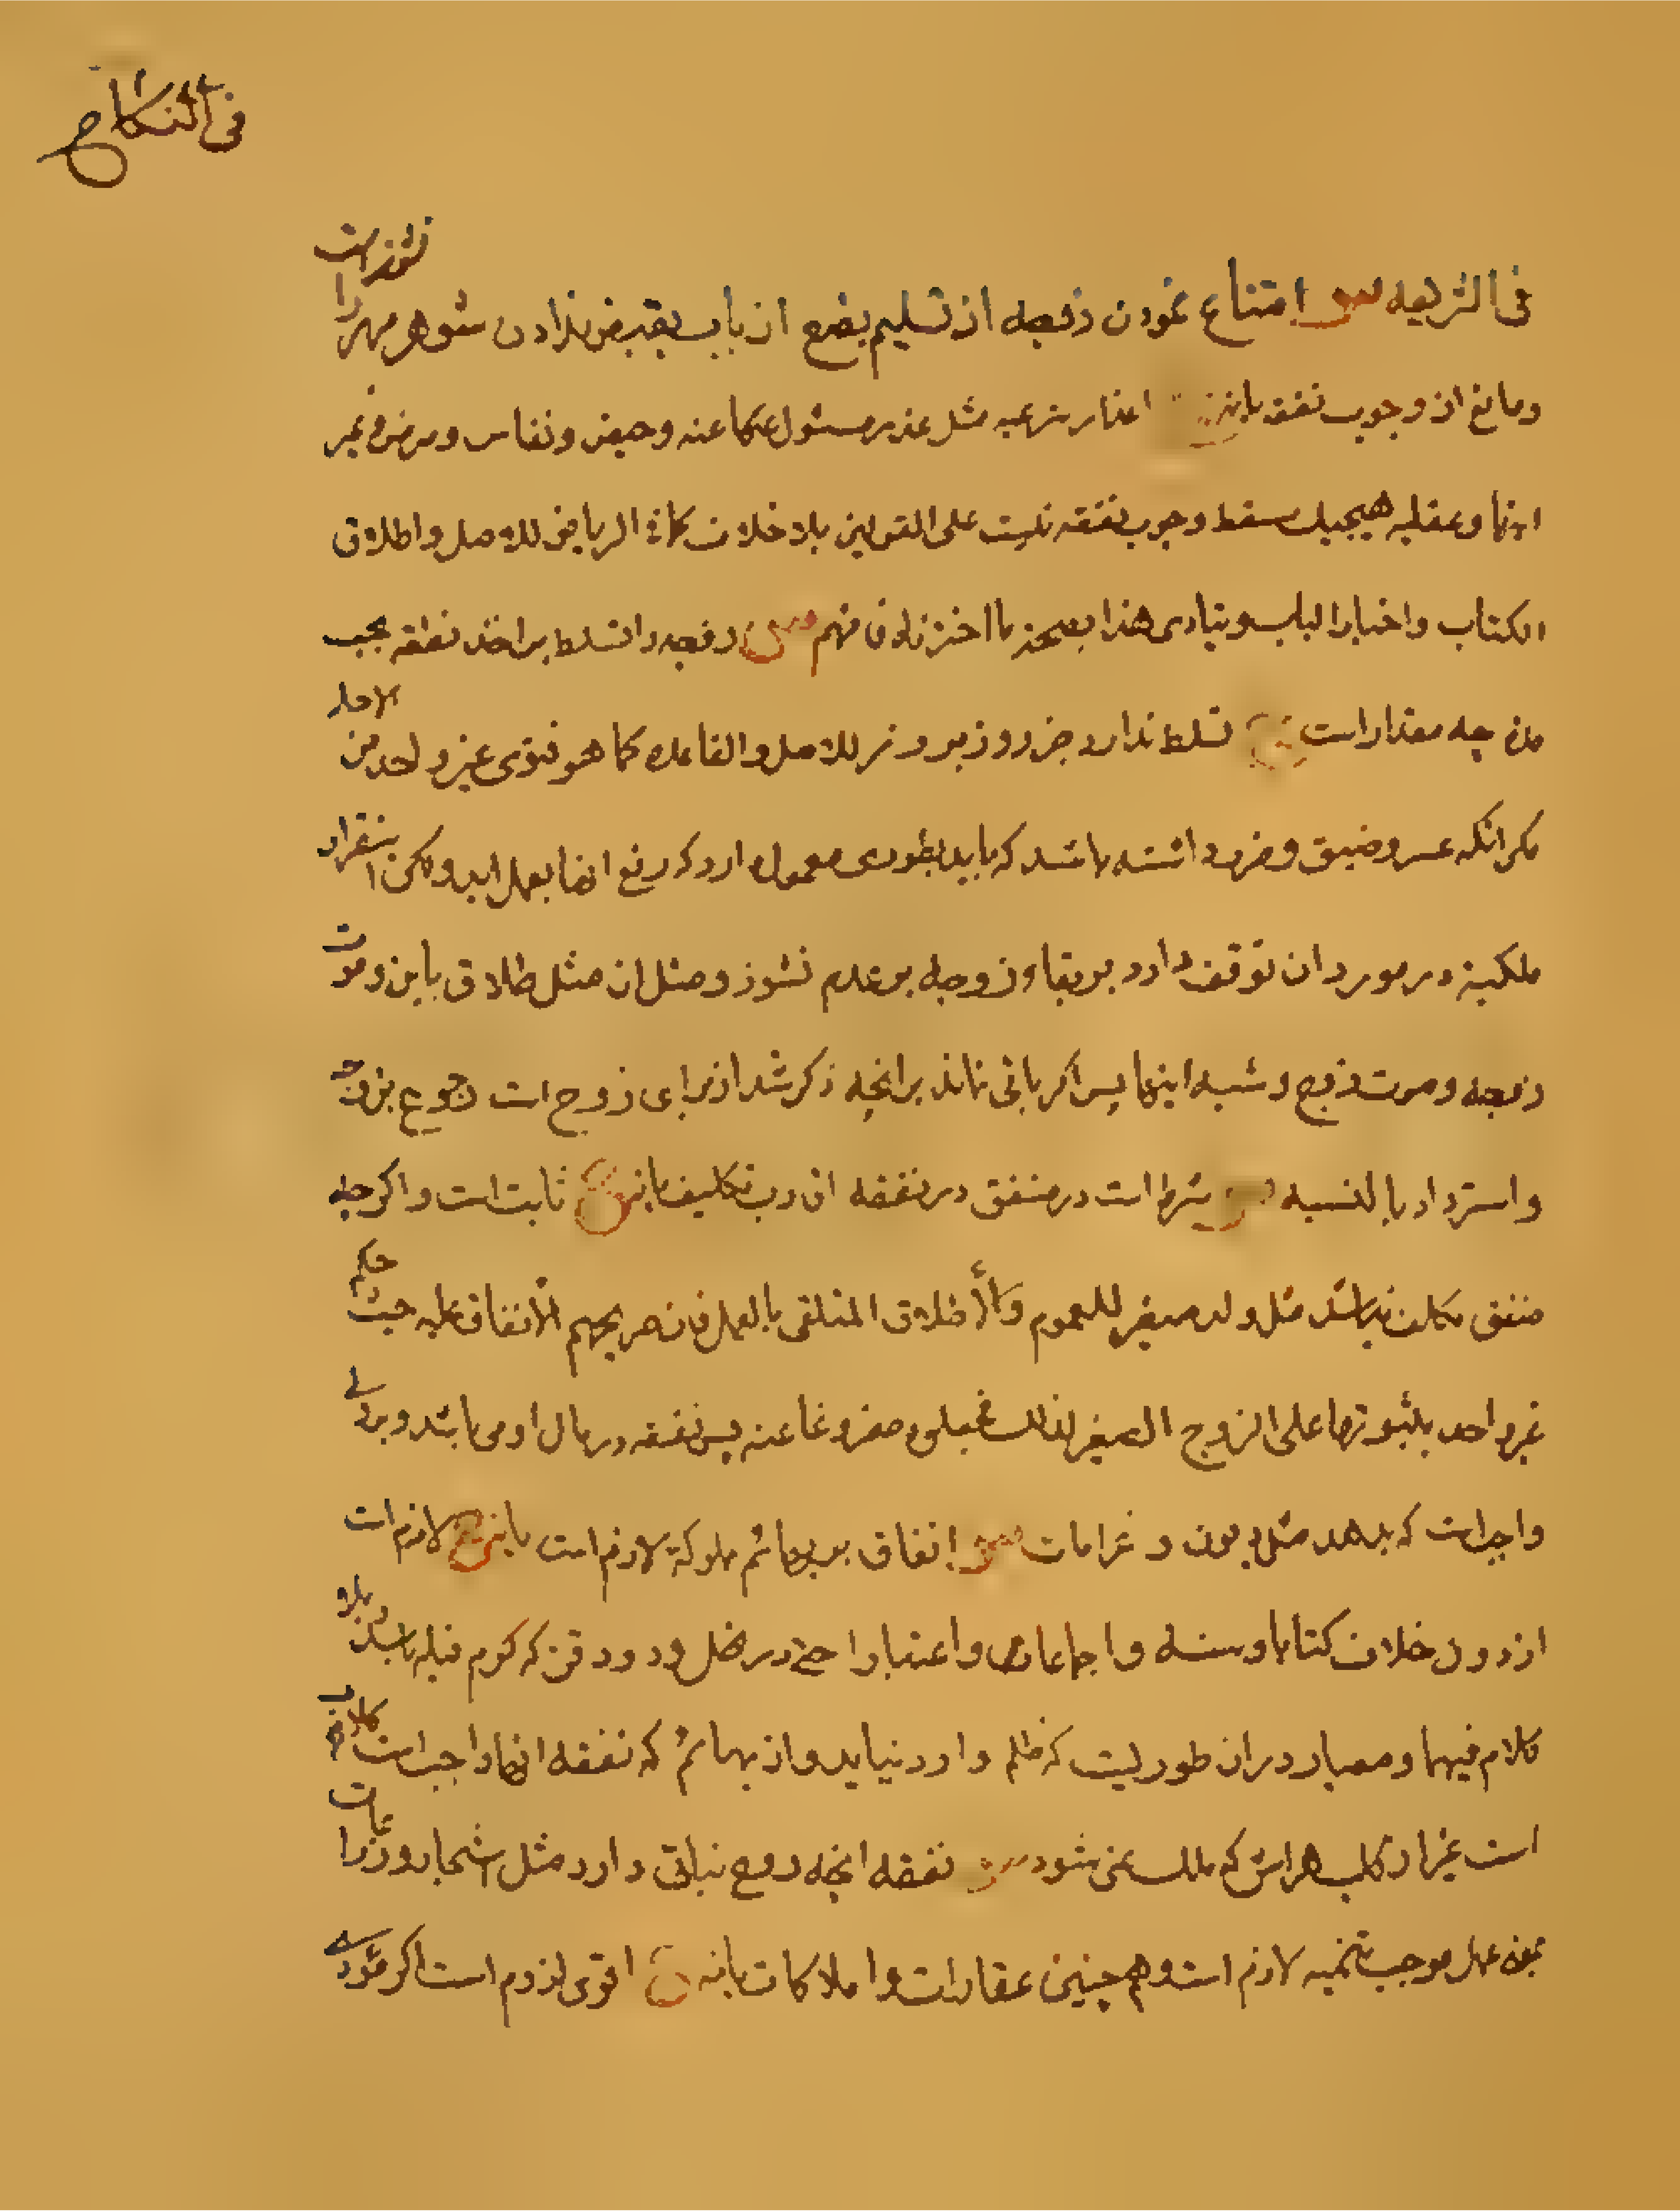 فی النکاح
فی الشریعه س امتناع نمودن زوجه از تسلیم بضع از باب بقبض ندادن شوهر مهر را نشوز است
و مانع از وجوب نفقه یا نه ج اعذار شرعیه مثل عذر مسئول عنه و حیض و نفاس و مرض و غیر
اینها و عقلیه هیچیک مسقط وجوب نفقه نیست علی القولین بلا خلاف کما فی الریاض للاصل و اطلاق
الکتاب و اخبار الباب و ینادی هذا بصحة ما اخترناه فافهم س زوجه را تسلط بر اخذ نفقه بحسب
مدة چه مقدار است ج تسلط ندارد جز روز بروز للاصل و القاعده کما هو فتوی غیر واحد من الاجله
مکر انکه عسر و ضیق و ضرر داشته باشد که باید بطوری معمول دارد که رفع انها بعمل اید و لکن استقرار
ملکیة در مورد ان توقف دارد بر بقاء زوجه بر عدم نشوز و مثل ان مثل طلاق باین و موت
زوجه و موت زوج و شبه اینها پس اکر باقی نماند بر انچه ذکر شد از برای زوج است رجوع بزوجه
و استرداد بالنسبه س شرط است در منفق در نفقه اقارب تکلیف یا نه ج ثابت است و اکر چه
منفق مکلف نباشد مثل ولد صغیر للعموم و الأطلاق المتلقی بالعمل فان صریحهم الأنفاق علیه حیث حکم
غیر واحد بثبوتها علی الزوج الصغیر لذلک پس نفقه در مال او می باشد و بر ولی
واجب است که بدهد مثل دیون و غرامات س انفاق بر بهائم مملوکة لازم است یا نه ج لازم است
از دون خلاف کتابا و سنة و اجماعا و اعتبارا حتی در نحل و دود قز که کرم فیله باشد و بلا
کلام فیهما و معیار در ان طوریست که ظلم وارد نیاید و از بهائم که نفقه انها واجب است کلاب
است غیر از کلب هراش که ملک نمی شود س نفقه انچه روح نباتی دارد مثل اشجار و زراعات
بدون عمل موجب تنمیه لازم است و همچنین عقارات و املاکات یا نه ج اقوی لزوم است اکر مؤدی